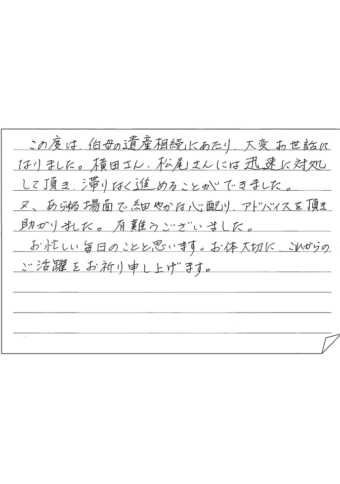 この度は、伯母の遺産相続にあたり、大変お世話に
なりました。横田さん、松尾さんには迅速に対処
して頂き、滞りなく進めることができました。
又、あらゆる場面で細やかな心配り、アドバイスを頂き
助かりました。有難うございました。
お忙しい毎日のことと思います。お体大切に、これからの
ご活躍をお祈り申し上げます。